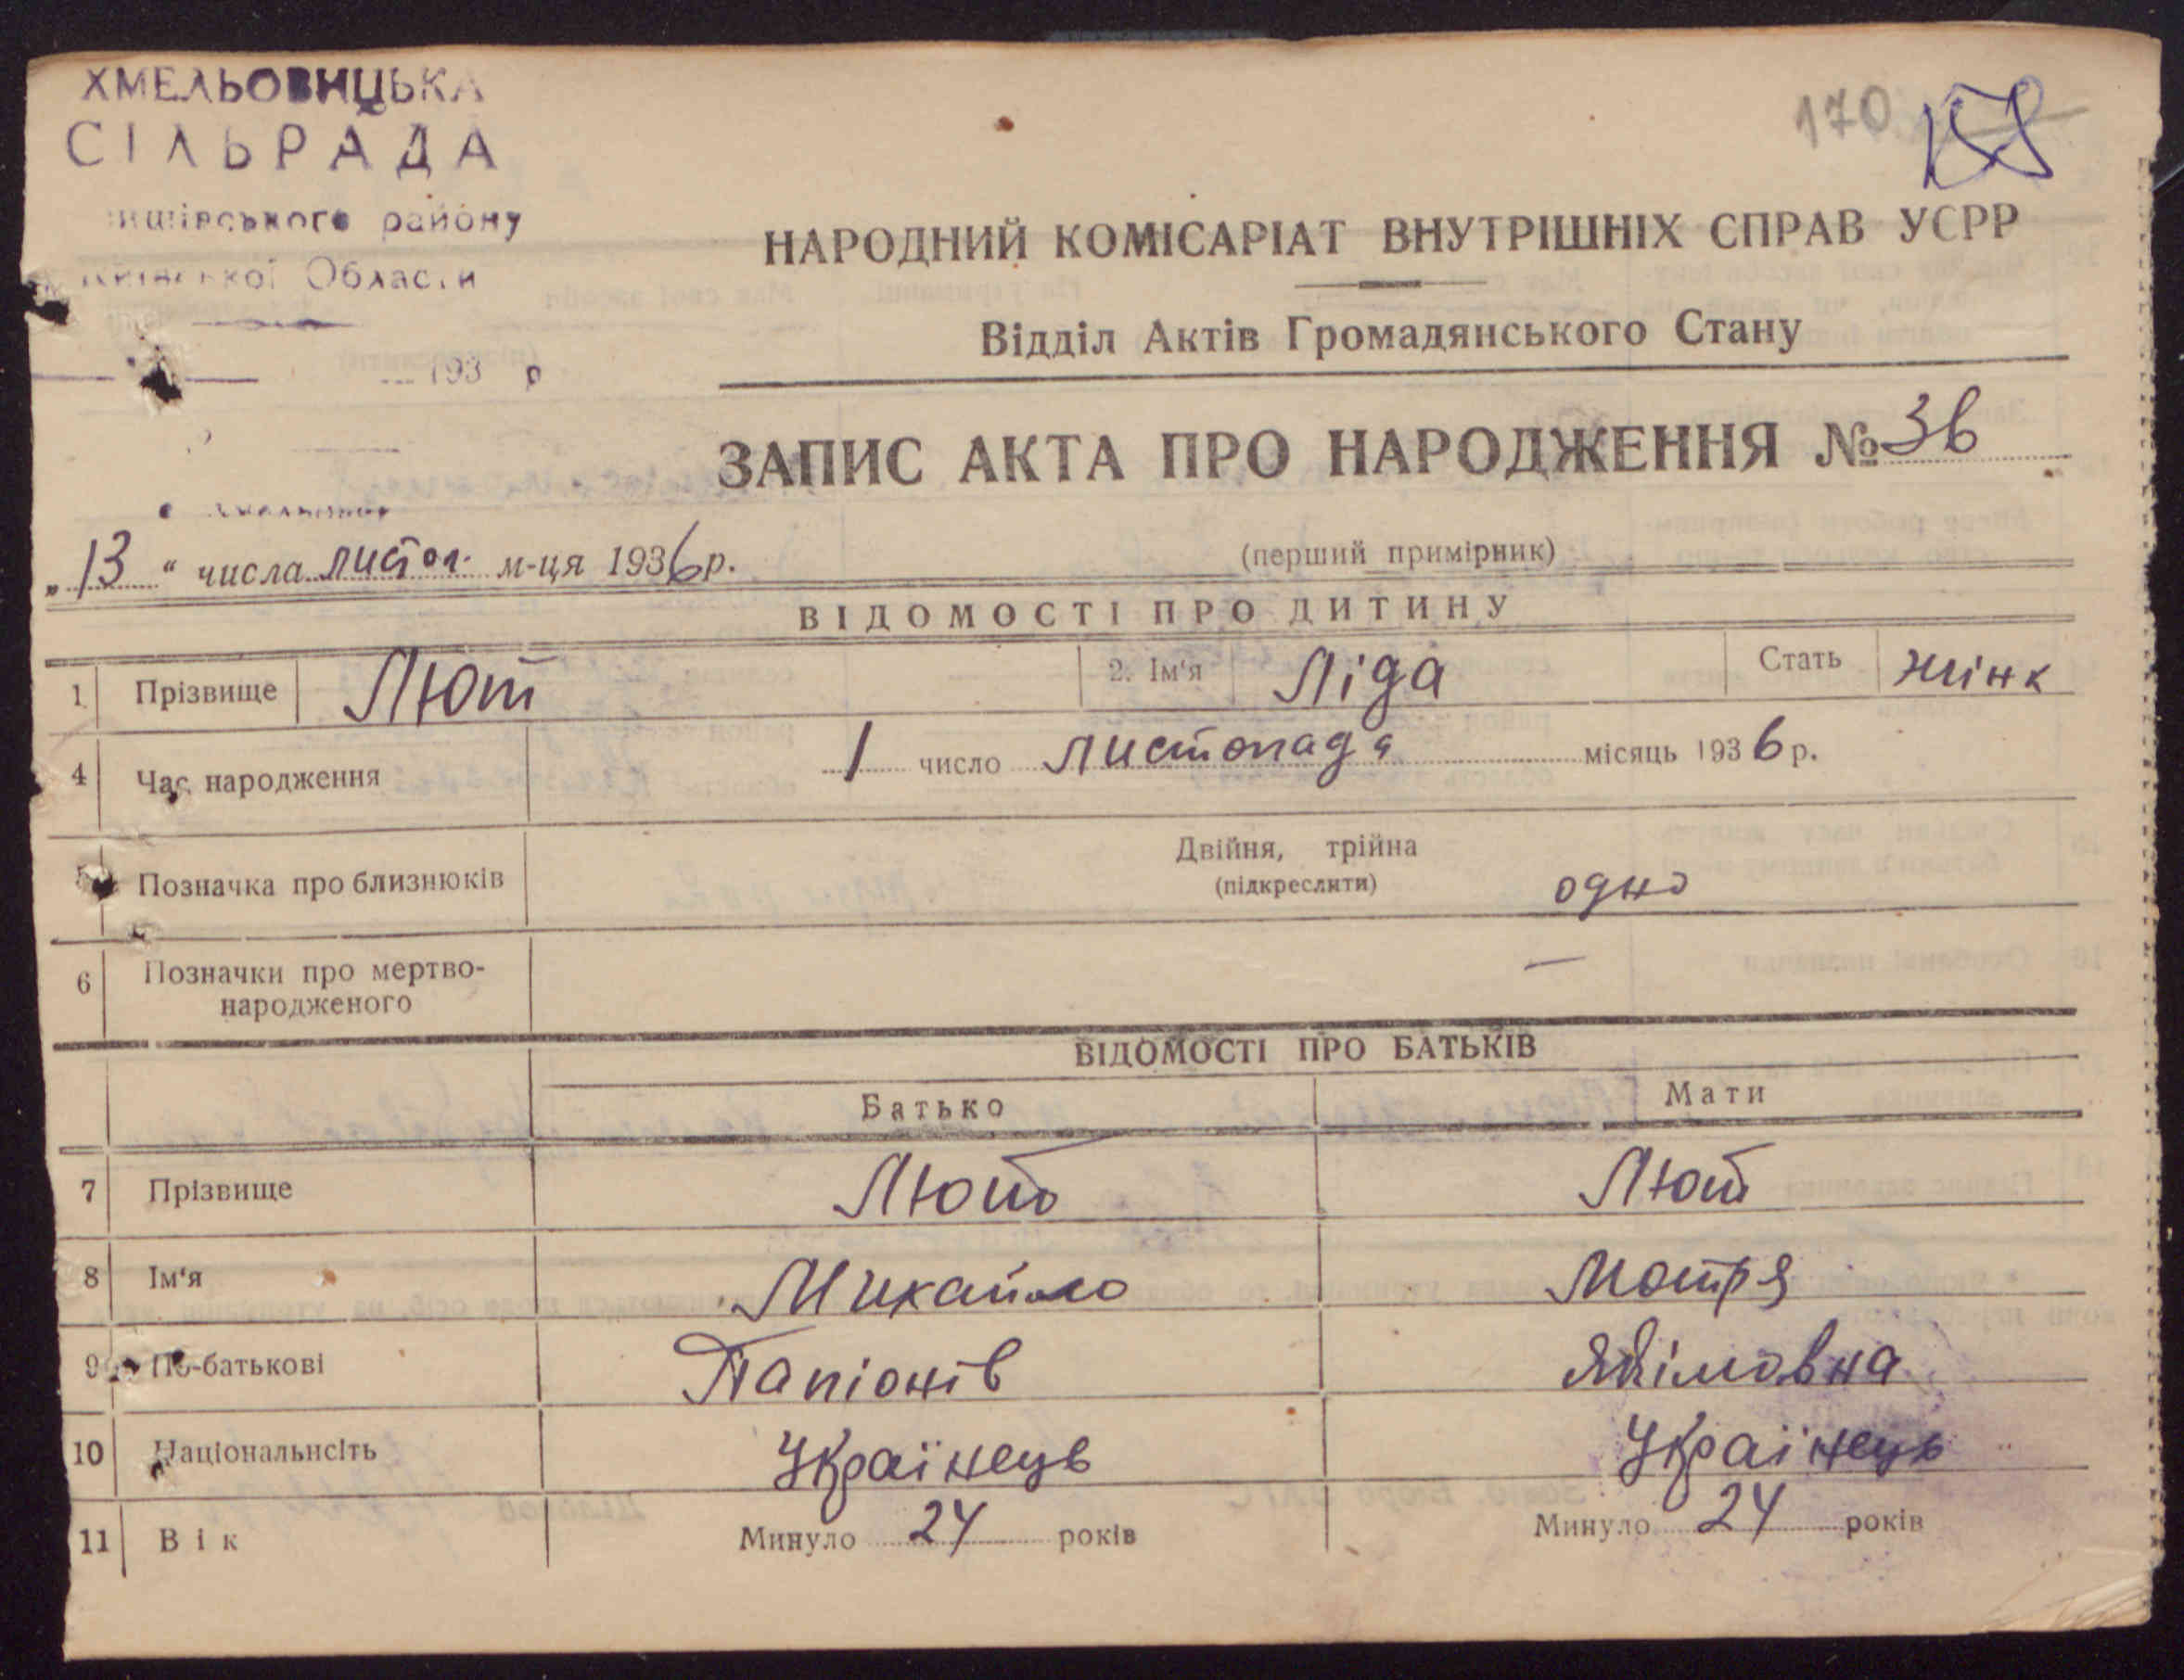 ХМЕЛЬОВИЦЬКА
СІЛЬРАДА
району
Області
193 р
170
НАРОДНИЙ КОМІСАРІАТ ВНУТРІШНІХ СПРАВ УСРР
Відділ Актів Громадянського Стану
ЗАПИС АКТА ПРО НАРОДЖЕННЯ № 36
„13“ числа листоп. м-ця 1936 р.
(перший примірник)
ВІДОМОСТІ ПРО ДИТИНУ
1 Прізвище Лют 2. Ім'я Ліда Стать жінк
4 Час народження 1 число листопада місяць 1936 р.
5 Позначка про близнюків Двійня, трійна
(підкреслити) одно
6 Позначки про мертво-
народженого —
ВІДОМОСТІ ПРО БАТЬКІВ
Батько Мати
7 Прізвище Лют Лют
8 Ім'я Михайло Мотря
9 По-батькові
10 Національнсіть Українець Українець
11 Вік Минуло 24 років Минуло 24 років